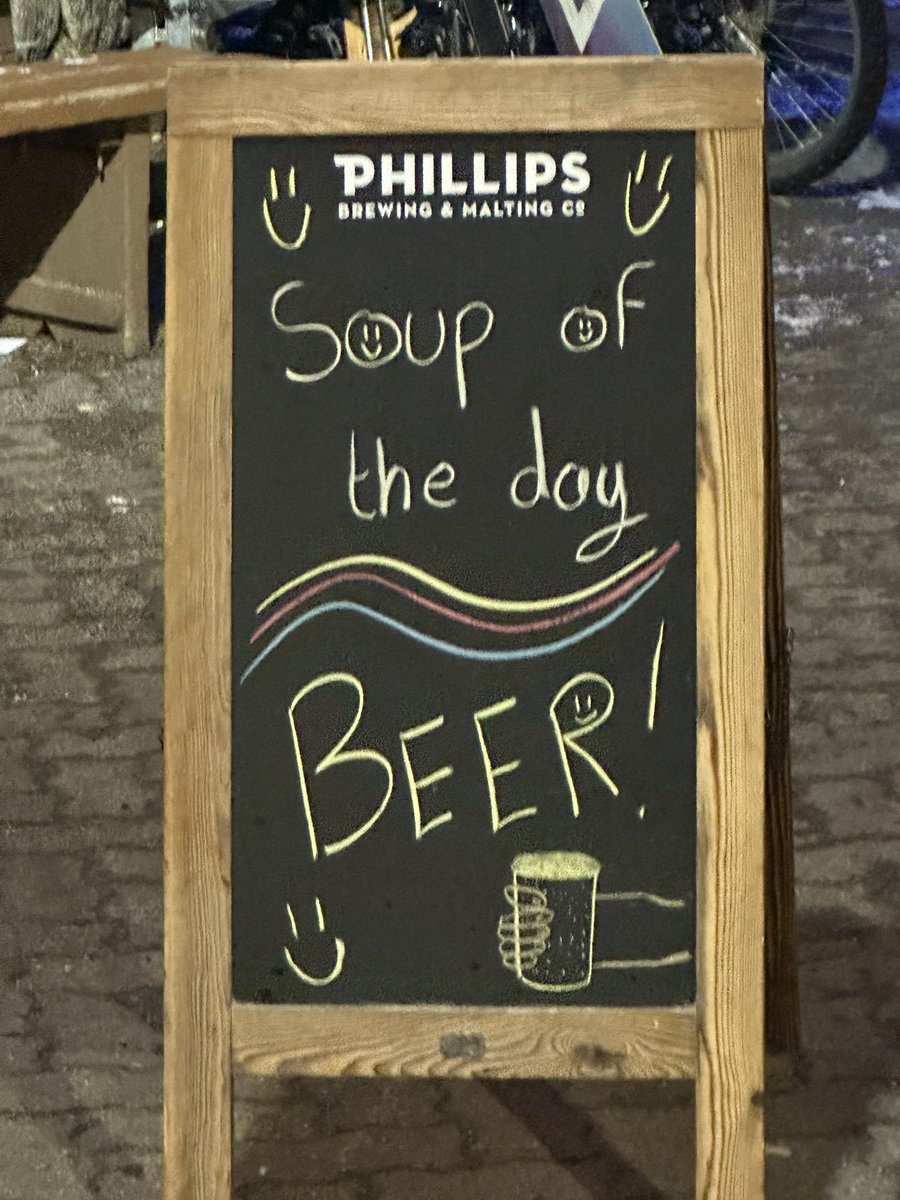 PHILLIPS
BREWING & MALTING Co
Soup of
the day
BEER!